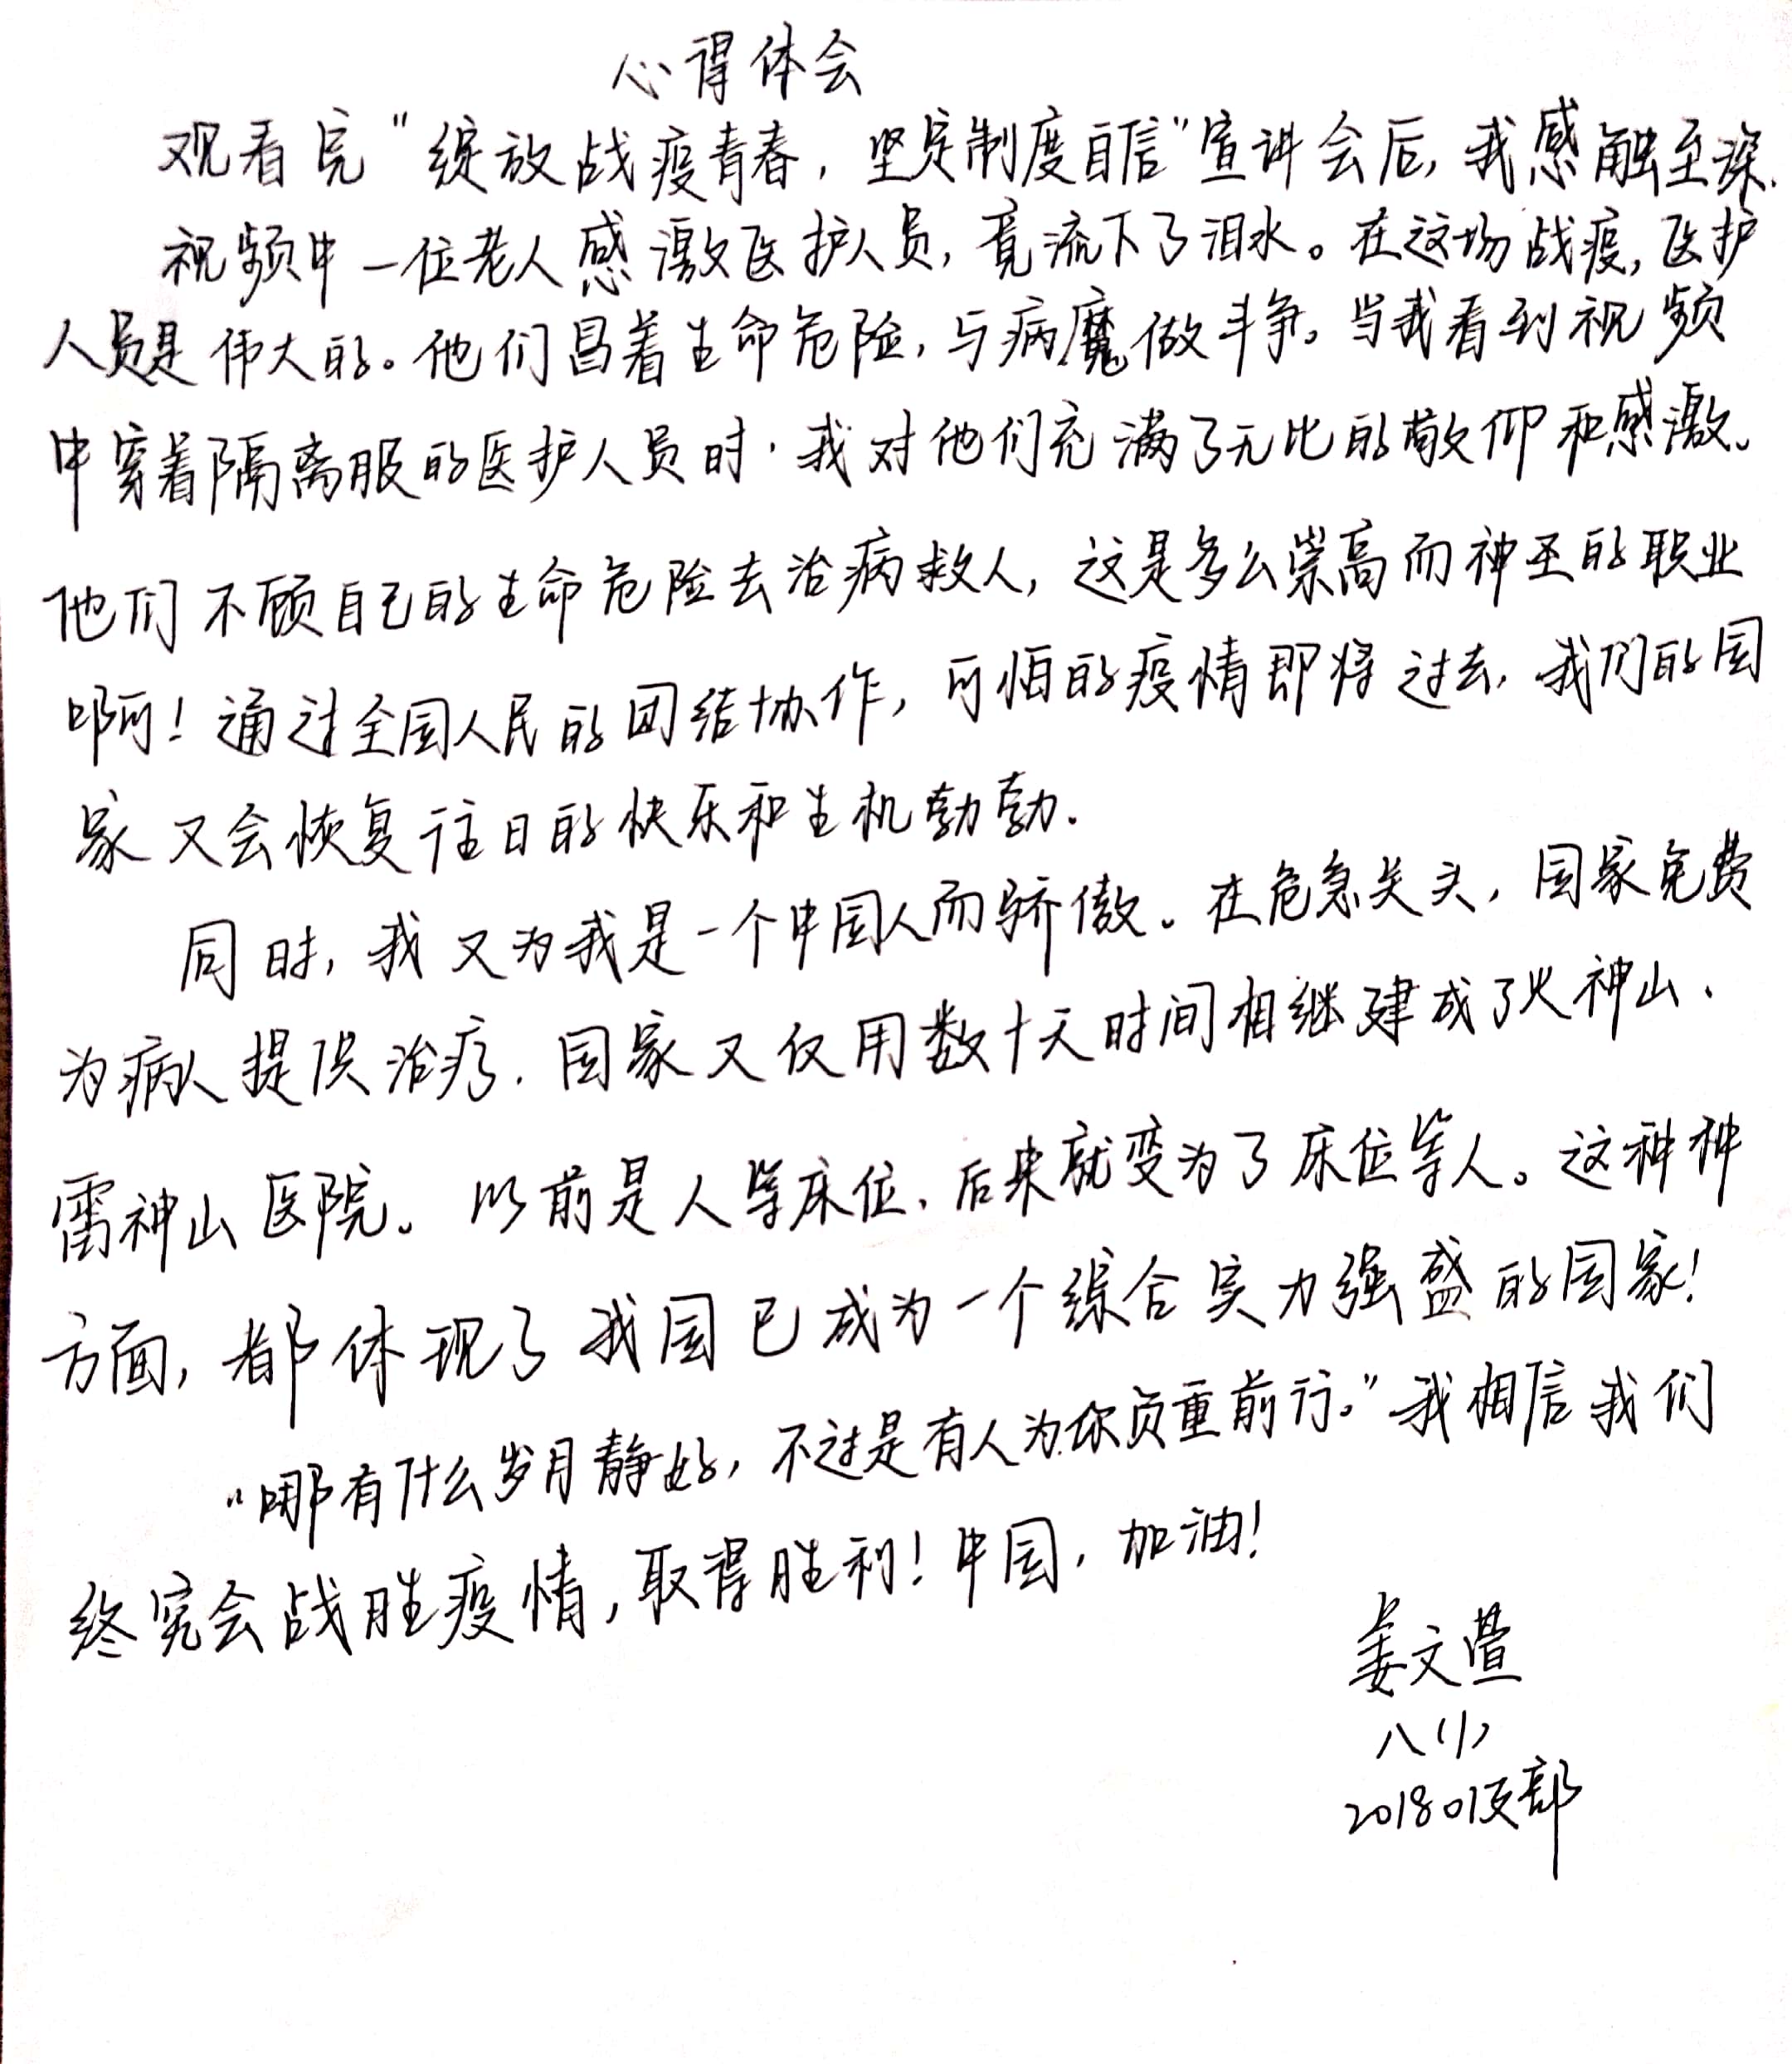 心得体会
观看完“绽放战疫青春，坚定制度自信”宣讲会后，我感触至深.
视频中一位老人感激医护人员，竟流下了泪水。在这场战疫，医护
人员是伟大的。他们冒着生命危险，与病魔做斗争。当我看到视频
中穿着隔离服的医护人员时，我对他们充满了无比的敬仰和感激。
他们不顾自己的生命危险去治病救人，这是多么崇高而神圣的职业
啊！通过全国人民的团结协作，可怕的疫情即将过去，我们的国
家又会恢复往日的快乐和生机勃勃.
同时，我又为我是一个中国人而骄傲。在危急关头，国家免费
为病人提供治疗.国家又仅用数十天时间相继建成了火神山、
雷神山医院。以前是人等床位，后来就变为了床位等人。这种种
方面，都体现了我国已成为一个综合实力强盛的国家！
“哪有什么岁月静好，不过是有人为你负重前行。”我相信我们
终究会战胜疫情，取得胜利！中国，加油！
姜文萱
八(1)
201801支部